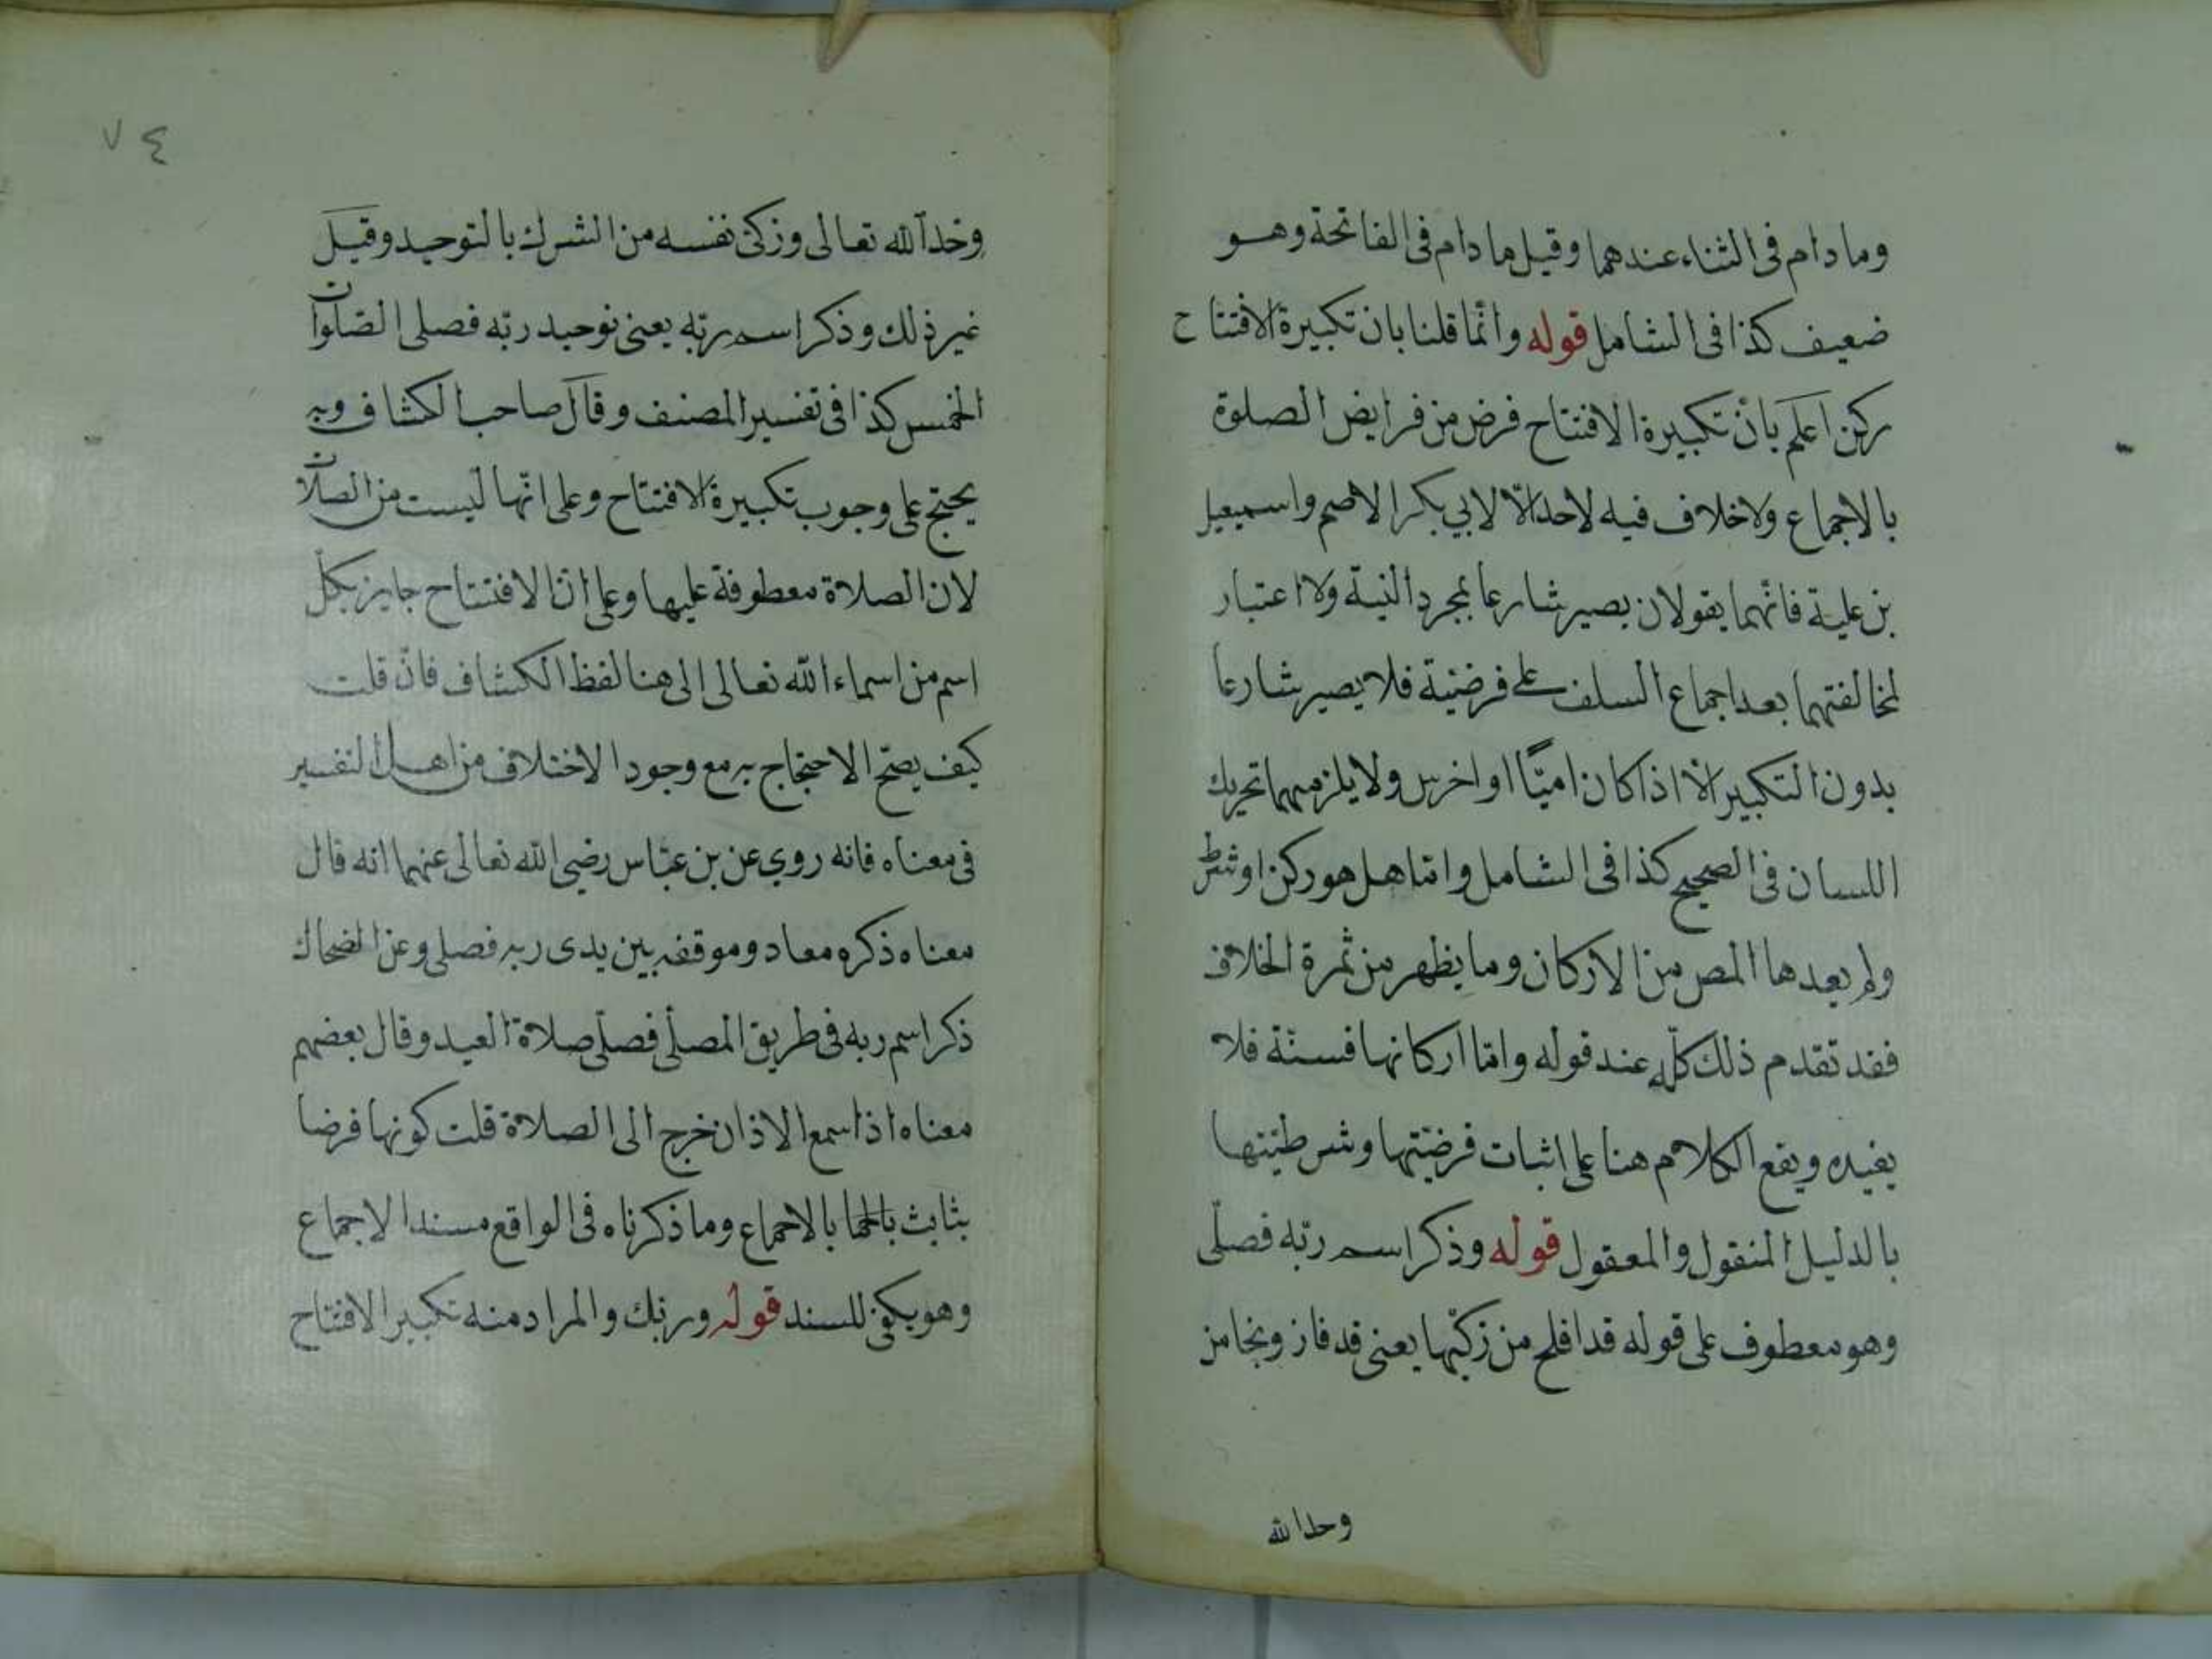 وما دام فى الثناء عندهما وقيل ما دام فى الفاتحة وهو
ضعيف كذا فى الشامل قوله وانّما قلنا بان تكبيرة الافتتاح
ركن اعلم بانّ تكبيرة الافتتاح فرض من فرايض الصلوة
بالاجماع ولا خلاف فيه لاحد الّا لابي بكر الاصم واسمعيل
بن علية فانّهما يقولان يصير شارعا بمجرد النية ولا اعتبار
لمخالفتهما بعد اجماع السلف على فرضيّة فلا يصير شارعا
بدون التكبير الّا اذا كان اميّا او اخرس ولا يلزمهما تحريك
اللسان فى الصحيح كذا فى الشامل وامّا هل هو ركن او شرط
ولم يعدها المص من الاركان وما يظهر من ثمرة الخلاف
فقد تقدم ذلك كلّه عند قوله وامّا اركانها فستّة فلا
يفيده ويقع الكلام هنا على اثبات فرضيّتها وشرطيّتها
بالدليل المنقول والمعقول قوله وذكر اسم ربّه فصلّى
وهو معطوف على قوله قد افلح من زكّيها يعنى قد فاز ونجا من
وحد الله
٧٤
وحّد الله تعالى وزكّى نفسه من الشرك بالتوحيد وقيل
غير ذلك وذكر اسم ربّه يعنى توحيد ربّه فصلى الصّلوات
الخمس كذا فى تفسير المصنف وقال صاحب الكشاف وبه
يحتج على وجوب تكبيرة الافتتاح وعلى انّها ليست من الصلات
لان الصلاة معطوفة عليها وعلى انّ الافتتاح جايز بكلّ
اسم من اسماء الله تعالى الى هنا لفظ الكشاف فانّ قلت
كيف يصحّ الاحتجاج به مع وجود الاختلاف من اهل التفسير
فى معناه فانه روي عن بن عبّاس رضي الله تعالى عنهما انه قال
معناه ذكره معاد وموقفه بين يدى ربه فصلى وعن الضحاك
ذكر اسم ربه فى طريق المصلّى فصلّى صلاة العيد وقال بعضهم
معناه اذا سمع الاذان خرج الى الصلاة قلت كونها فرضا
بثابث بالاجماع وما ذكرناه فى الواقع مسند الاجماع
وهو يكفى للسند قوله وربّك والمراد منه تكبير الافتتاح